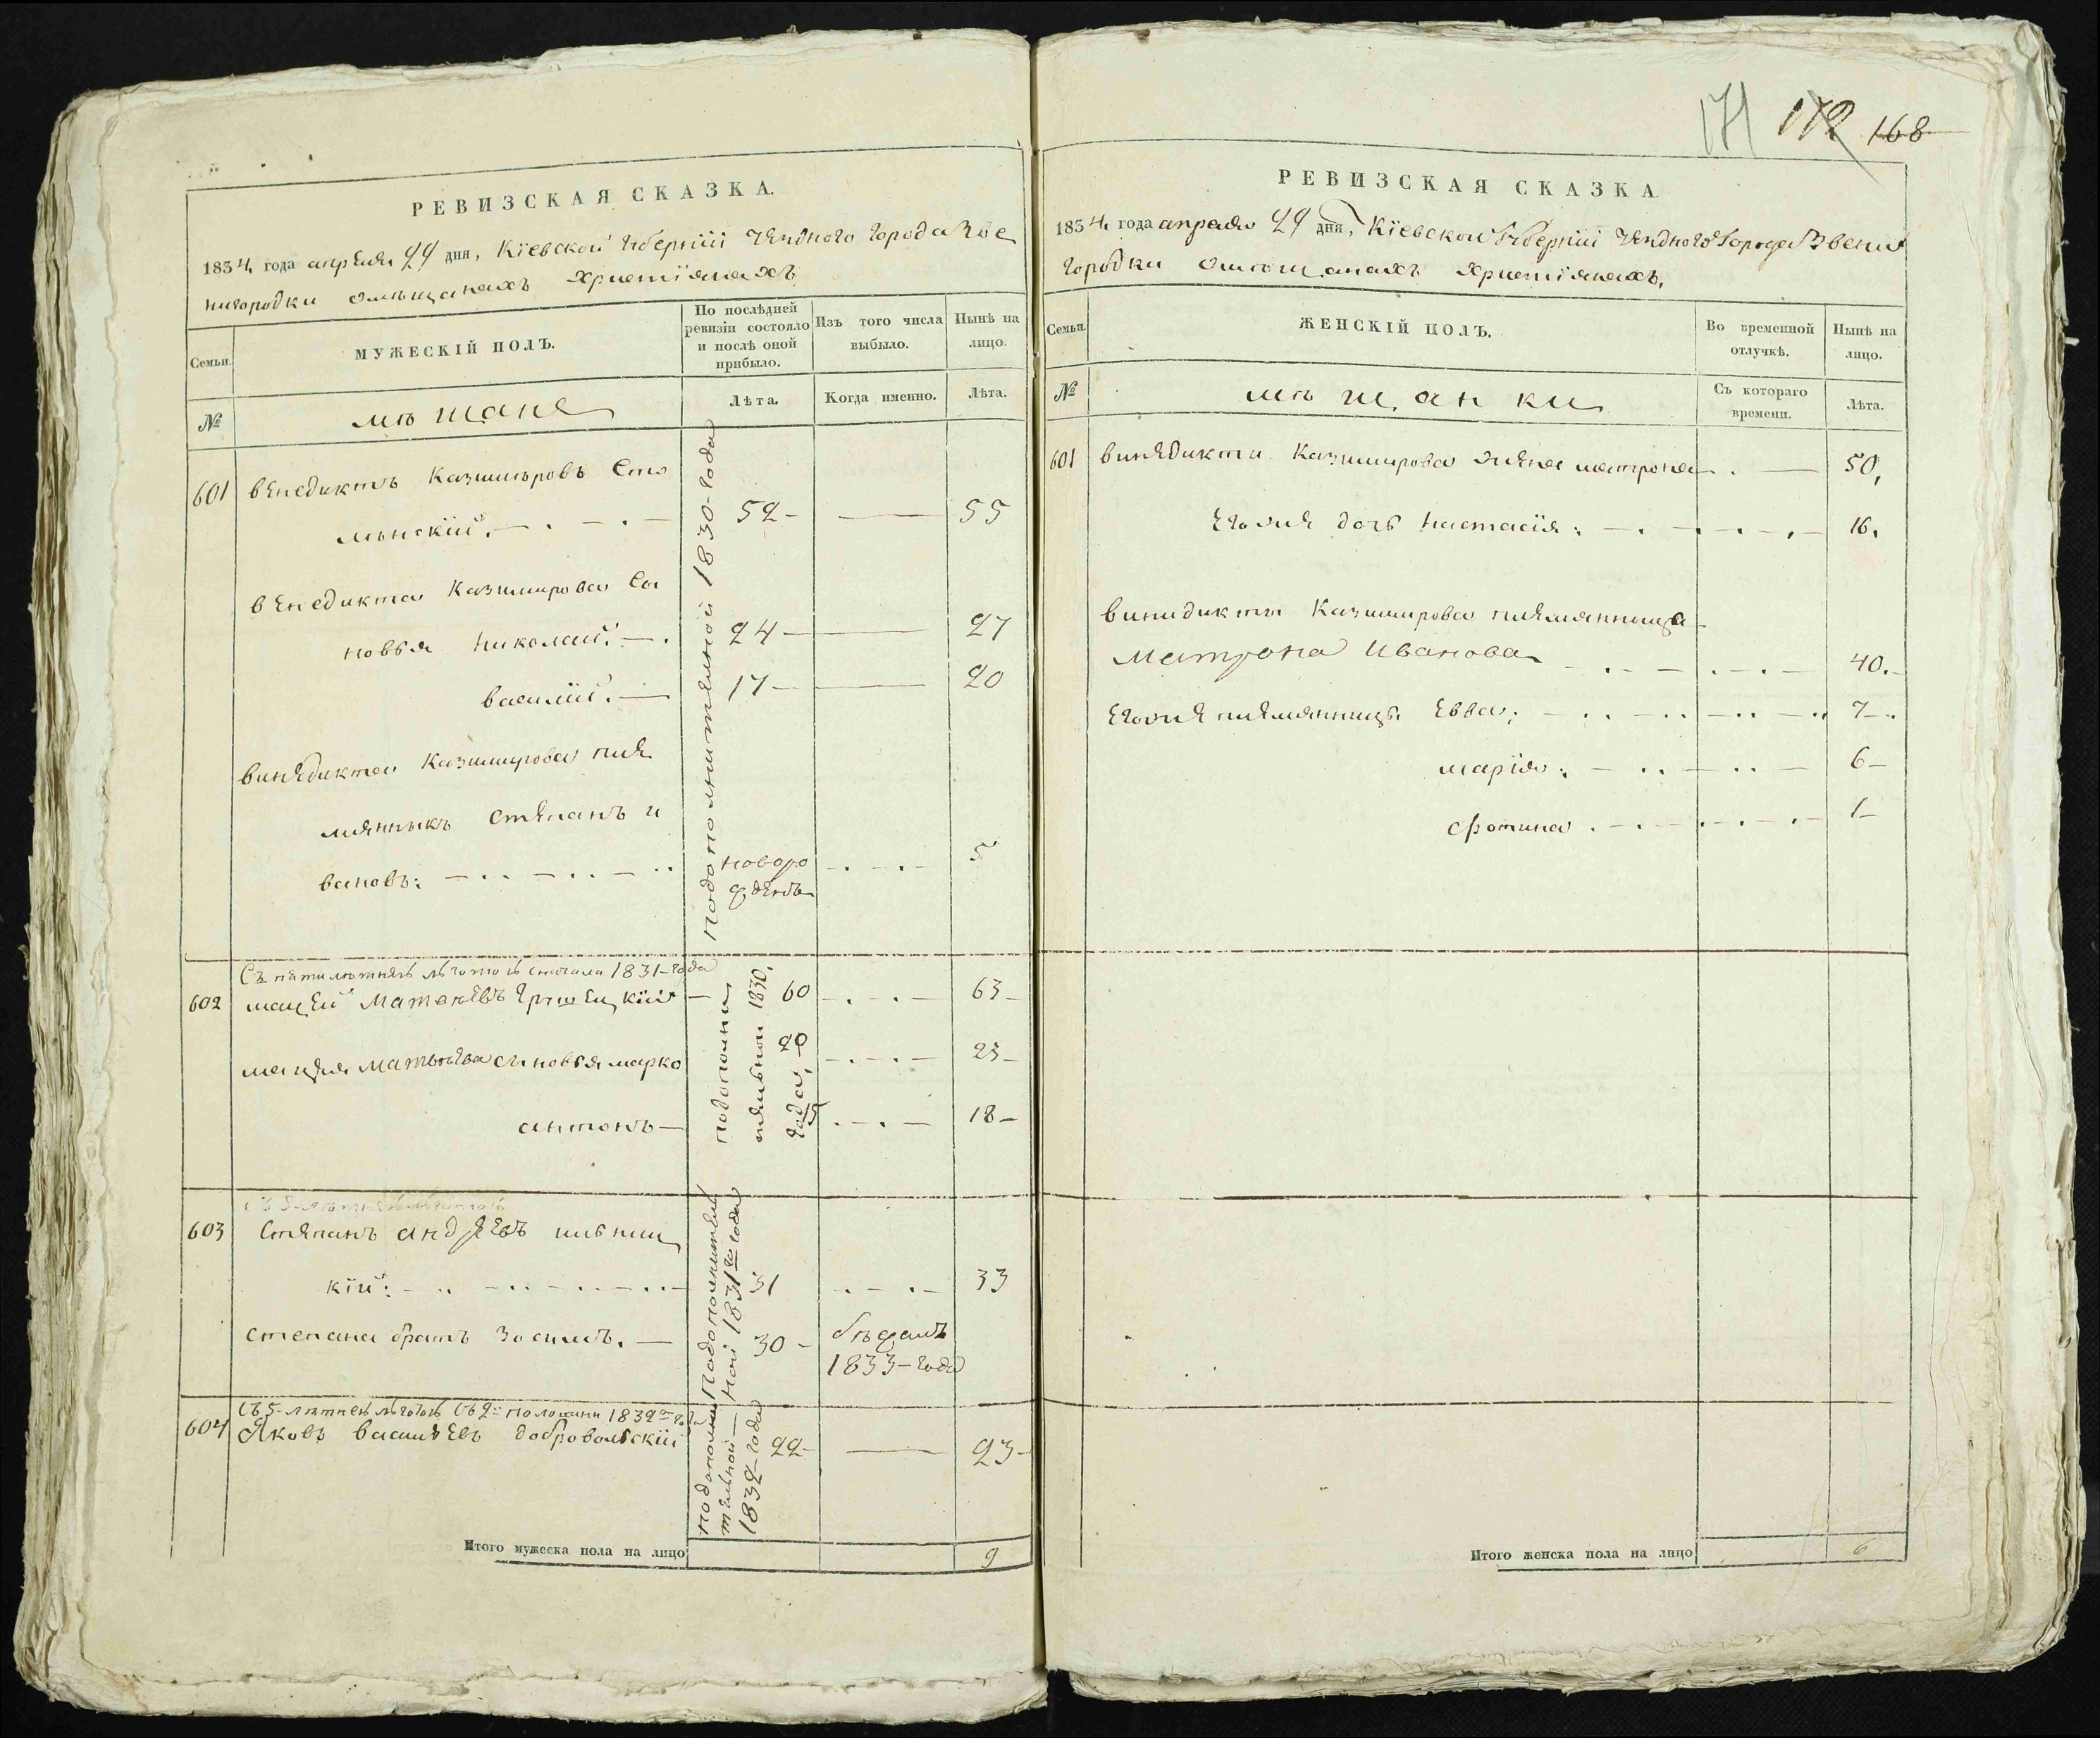 РЕВИЗСКАЯ СКАЗКА.
1834 года апреля 29 дня, Кіевской Губерніи Уезднаго Города Зве
нигородки Омещанахъ Христіянахъ
Семьи.
МУЖЕСКІЙ ПОЛЪ.
По послѣдней ревизіи состояло и послѣ оной прибыло.
Изъ того числа выбыло.
Нынѣ на лицо.
№
мѣщане
Лѣта.
Когда именно.
Лѣта.
Подополнительной 1830-года
601 Венедиктъ Казимировъ
52- — 55
Венедикта Казимирова сы
новья Николай: — 24 — 27
Василій. — 17 — 20
Винедикта Казимирова пле
мянникъ Степанъ И
вановъ: новоро жденъ 5
Съ пятилетней льготой сначала 1831-года
602 Мацей Матвеевъ — 60 — 63-
Мацея Матвеева сыновья Марко 20 — 23-
Антонъ — 15 — 18-
подополни тельной 1830. года
603 Степанъ Андреевъ
кій: 31 33
Степана братъ Зосимъ. — 30- бежалъ
1833-года
Подополнител ной 1831го года
Съ 5-летней льготой Съ 2й половины 1832го года
604 Яковъ Васильевъ Добровольскій 22- — 23-
подополни тельной 1832-года
Итого мужеска пола на лицо 9
171 172 168
РЕВИЗСКАЯ СКАЗКА.
1834 года апреля 29 дня, Кіевской Губерніи Уезднаго Города Звени
городки Омещанахъ Христіянахъ.
Семьи.
ЖЕНСКІЙ ПОЛЪ.
Во временной отлучкѣ.
Нынѣ на лицо.
№
мѣщанки
Съ котораго времени.
Лѣта.
601 Винедикта Казимирова жена Матрона — 50,
Егоже дочь Настасія: 16.
Винидикта Казимирова племянница
Матрона Иванова 40.-
Егоже племянницы Евва: 7-
Марія: 6-
Фотина 1-
Итого женска пола на лицо 6